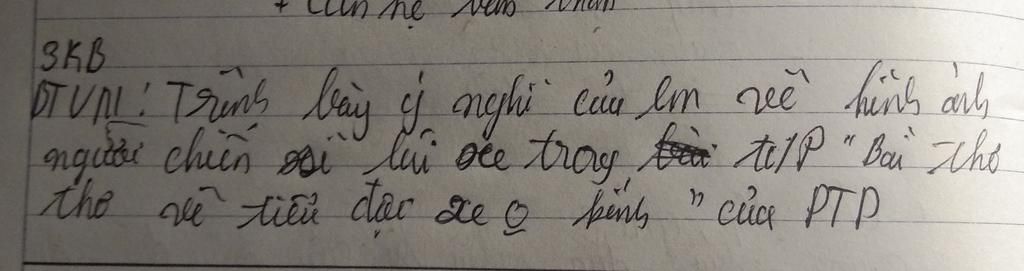 + liên hệ bản thân
3KB
ĐTVNL: Trình bày ý nghĩ của em về hình ảnh
người chiến sĩ lái xe trong t/P "Bài thơ
thơ về tiểu đội xe o kính" của PTP